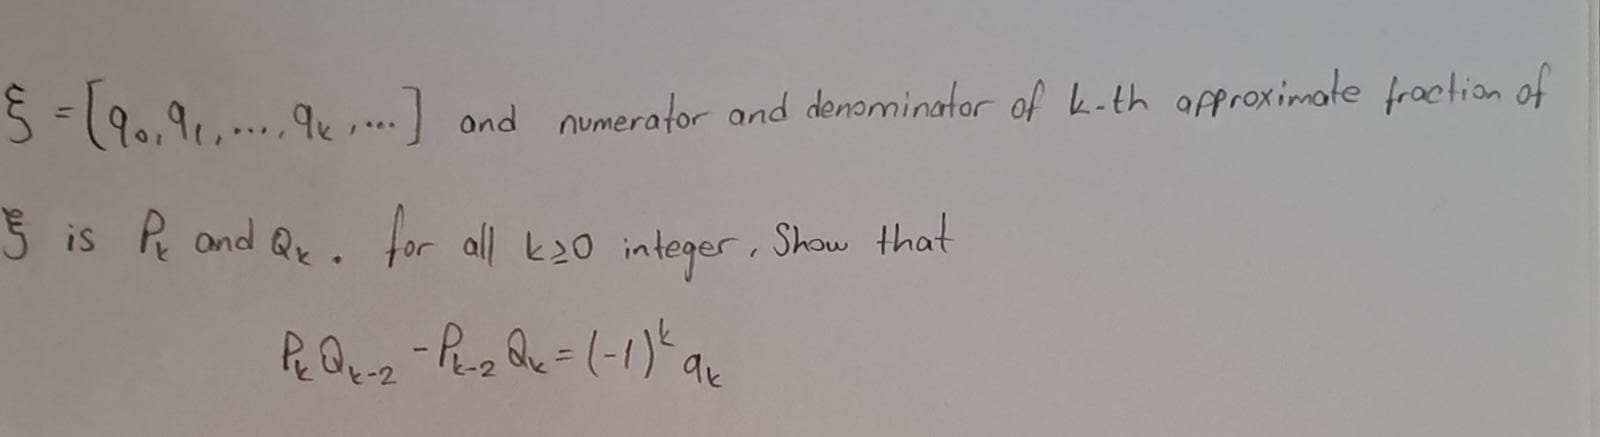 ξ = [q₀, q₁, ..., qₖ, ...] and numerator and denominator of k-th approximate fraction of
ξ is Pₖ and Qₖ. for all k≥0 integer, Show that
PₖQₖ₋₂ - Pₖ₋₂Qₖ = (-1)ᵏ qₖ